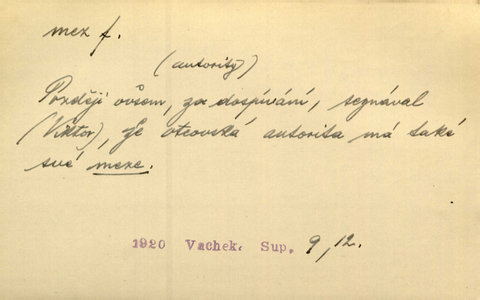 mez f.
(autority)
Později ovšem, za dospívání, seznával
(Viktor), že otcovská autorita má také
své meze.
1920 Vachek. Sup. 9, 12.